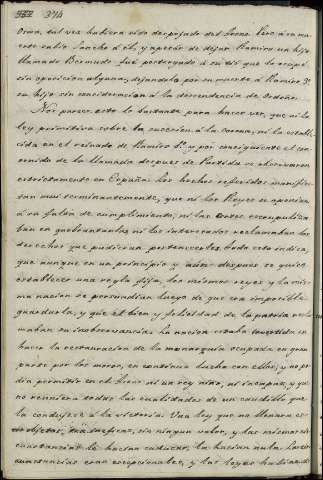 374
Oriña, tal vez hubiera sido despojado del trono. Pero á su mu-
erte subio Sancho á él, y apesar de dejar Ramiro un hijo
llamado Bermudo fué postergado á su tio que lo ocupó
sin oposicion alguna, dejandola por su muerte á Ramiro 3º
su hijo sin consideracion á la descendencia de Ordoño.
Nos parece esto lo bastante para hacer ver, que ni la
ley primitiva sobre la sucesion á la corona, ni la estable-
cida en el reinado de Ramiro 1º y por consiguiente el con-
tenido de la llamada despues de Partida se observaron
estrictamente en España. Los hechos referidos manifies-
tan mui terminantemente, que ni los Reyes se oponian
á su falta de cumplimiento, ni las Cortes escrupuliza-
ban en quebrantarlas ni los interesados reclamaban los
derechos que pudieran pertenecerles. Todo esto indica,
que aunque en un principio y aun despues se quiso
establecer una regla fija, los mismos reyes y la mis-
ma nacion se persuadian luego de que era imposible
guardarla, y que el bien y felicidad de la patria recla-
maban su inobservancia. La nacion estaba
hacer la restauracion de la monarquia ocupada en gran
parte por los moros, en continua lucha con ellos, y no po-
dia permitir en el trono ni un rey niño, ni incapaz, y que
no reuniera todas las cualidades de un caudillo que
la condujese á la victoria. Una ley que no llenara es-
te objeto, era ineficaz, sin ningun valor, y las mismas cir-
cunstancias la hacian caducar, la hacian nula. Las cir-
cunstancias eran escepcionales, y las leyes habian de